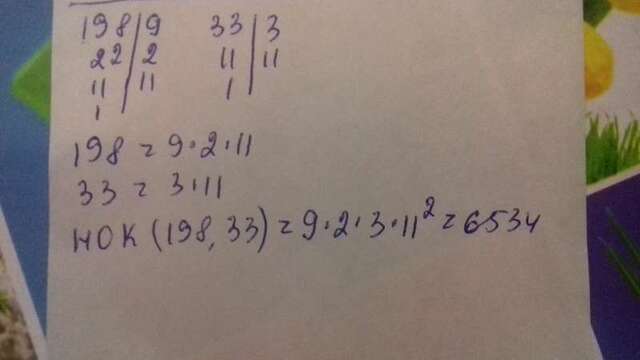 198|9 33|3
22|2 11|11
11|11 1
1
198 = 9·2·11
33 = 3·11
НОК (198, 33) = 9·2·3·11² = 6534